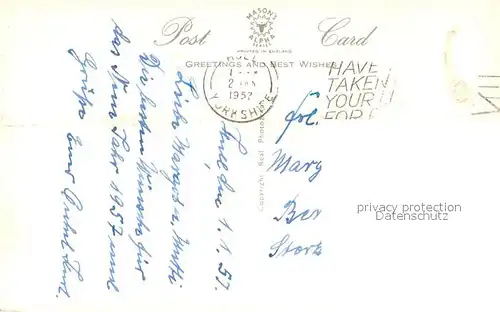 Post Card
MASON'S
ALPHA
SERIES
PRINTED IN ENGLAND
GREETINGS AND BEST WISHES
HULL
2 JAN
1957
YORKSHIRE
HAVE
TAKEN
YOUR
FOR
Copyright Real Photo
Hull den 1.1.57.
Liebe Margot u. Mutti
Die besten Wünsche für
das Neue Jahr 1957 und
Grüße Euer Onkel Kurt.
Frl.
Marg
Ber
Stork
privacy protection
Datenschutz